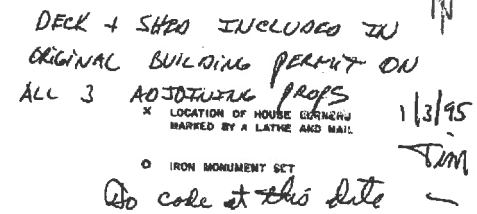 DECK + SHED INCLUDED IN
ORIGINAL BUILDING PERMIT ON
ALL 3 ADJOINING PROPS
X LOCATION OF HOUSE CORNERS
MARKED BY A LATHE AND NAIL
1/3/95
Tim
O IRON MONUMENT SET
code at this date